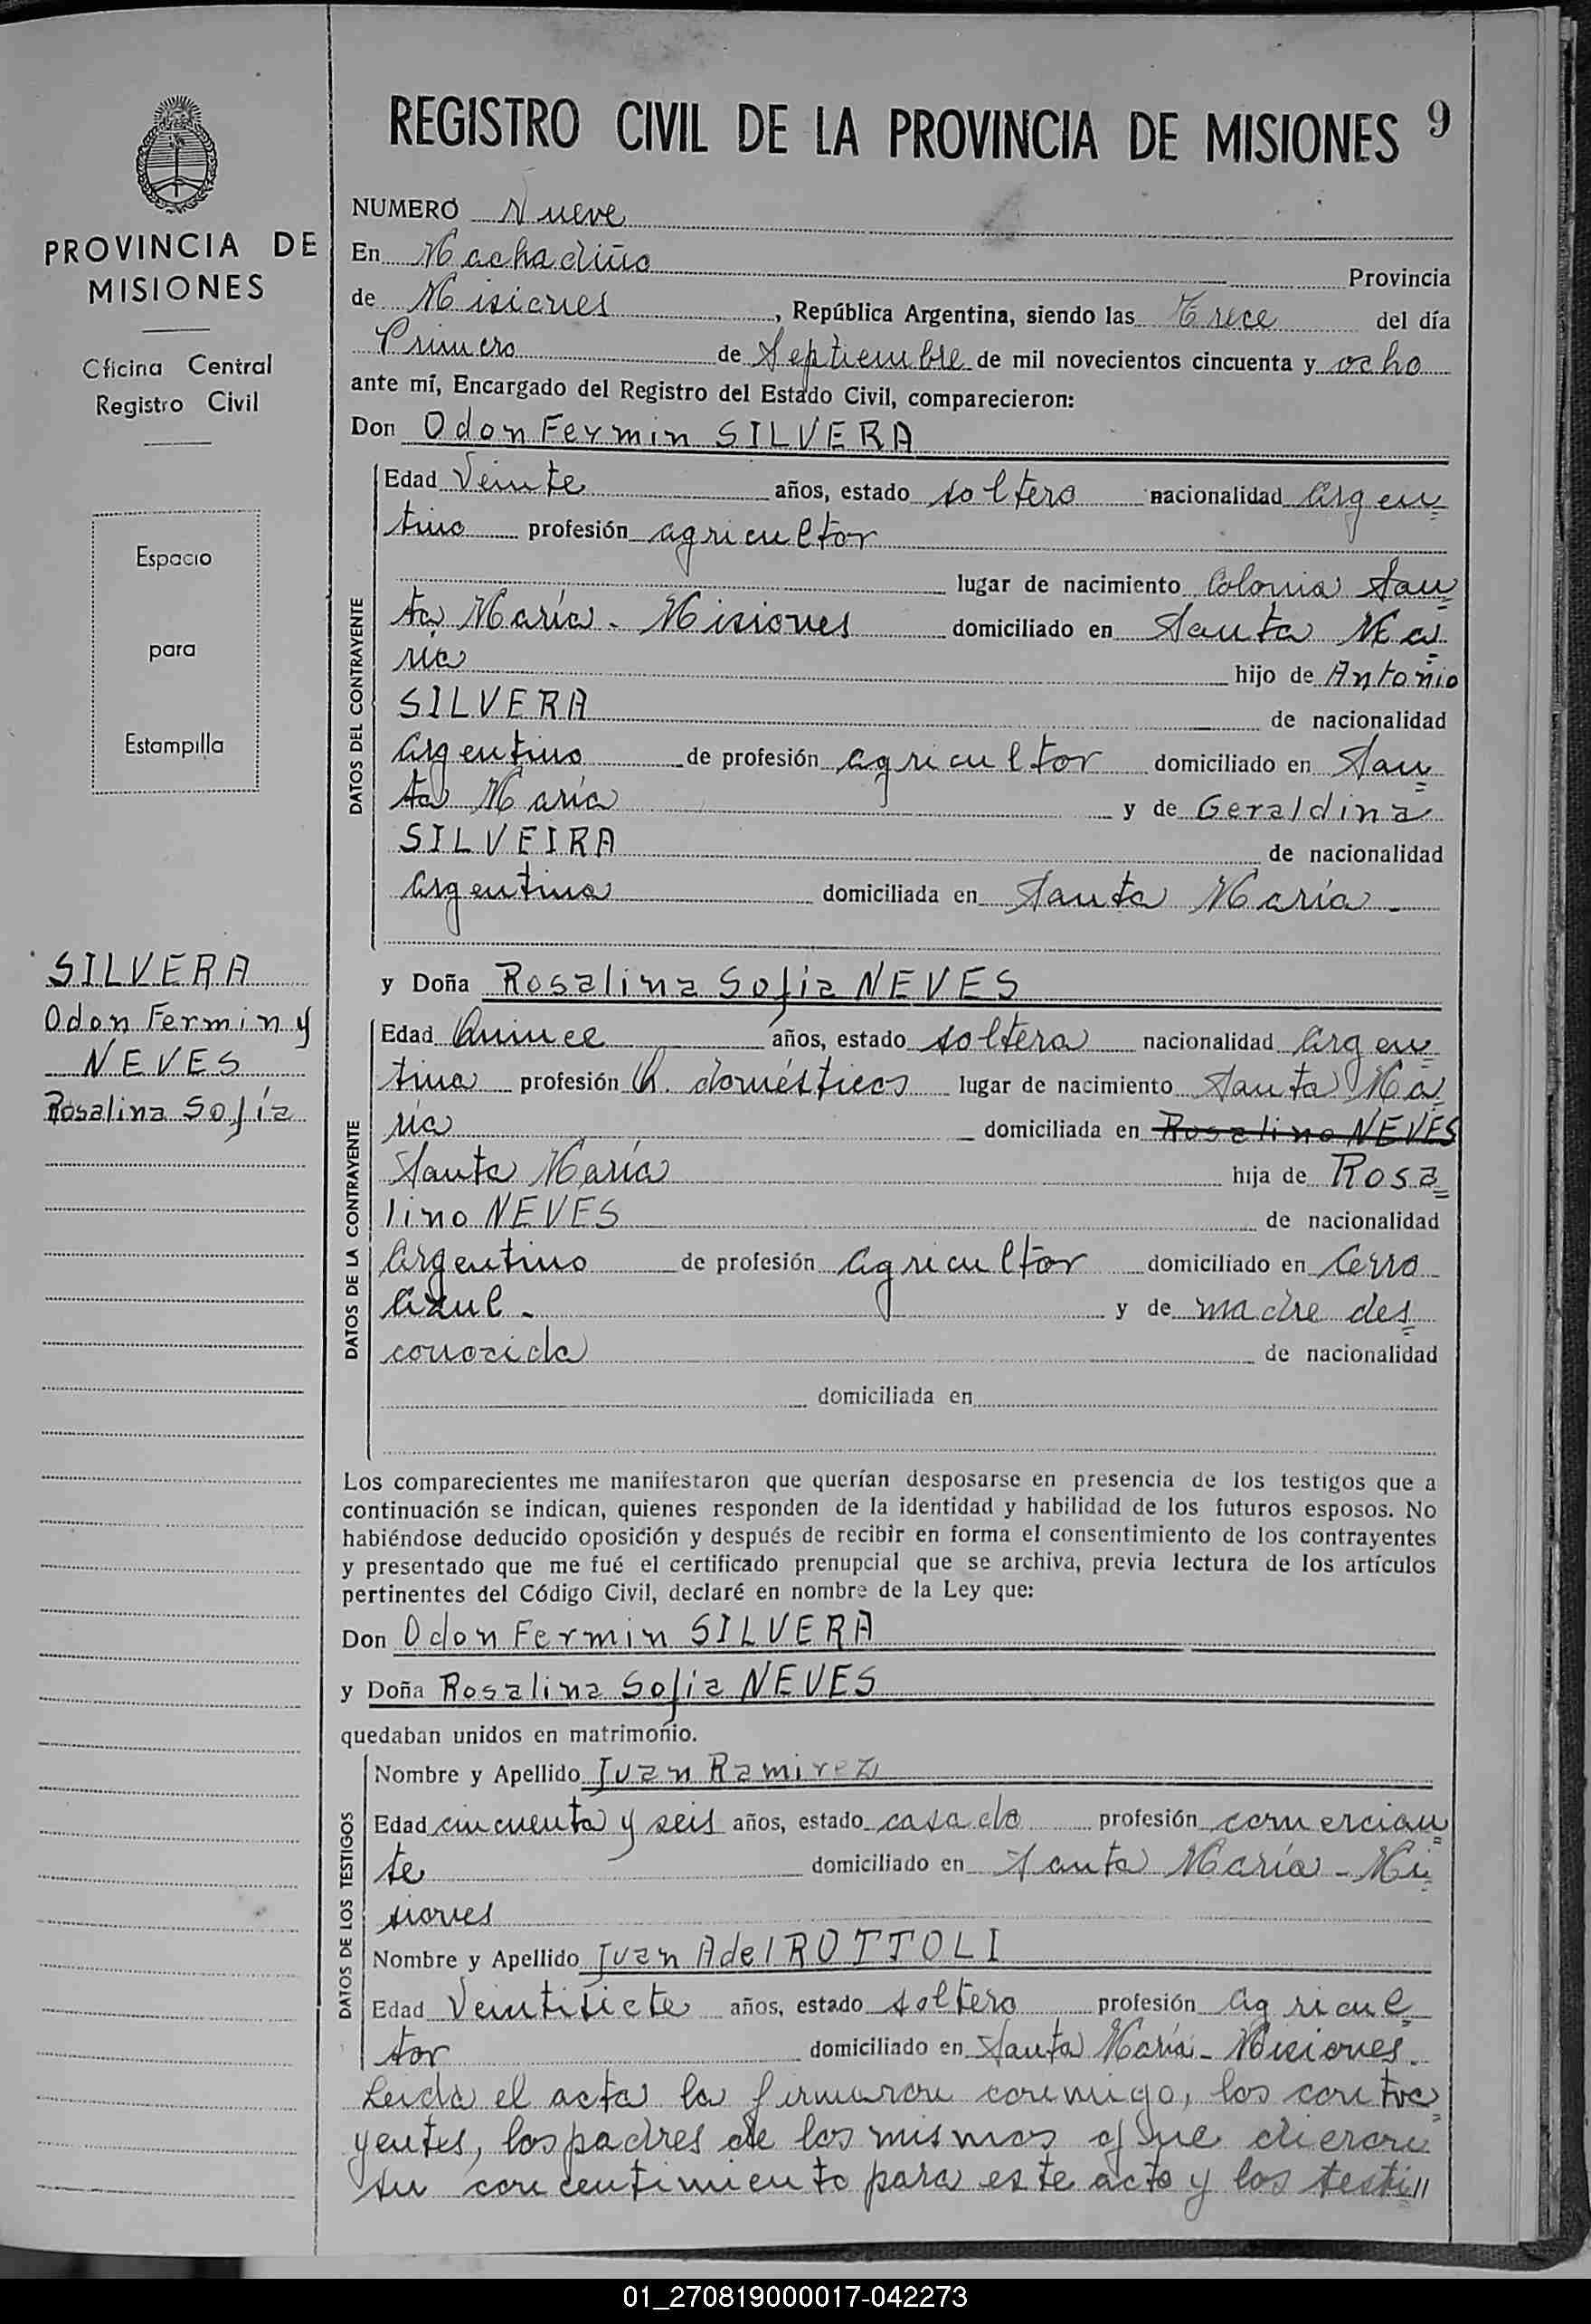 REGISTRO CIVIL DE LA PROVINCIA DE MISIONES 9
PROVINCIA DE
MISIONES
Oficina Central
Registro Civil
Espacio
para
Estampilla
SILVERA
Odon Fermin y
NEVES
Rosalina Sofía
NUMERO Nueve
En Machadiño Provincia
de Misiones, República Argentina, siendo las Trece del día
Primero de Septiembre de mil novecientos cincuenta y ocho
ante mí, Encargado del Registro del Estado Civil, comparecieron:
Don Odon Fermin SILVERA
DATOS DEL CONTRAYENTE
Edad Veinte años, estado soltero nacionalidad Argen=
tino profesión agricultor
lugar de nacimiento Colonia San=
ta María - Misiones domiciliado en Santa Ma=
ria hijo de Antonio
SILVERA de nacionalidad
Argentino de profesión agricultor domiciliado en San=
ta María y de Geraldina
SILVEIRA de nacionalidad
Argentina domiciliada en Santa María -
y Doña Rosalina Sofia NEVES
DATOS DE LA CONTRAYENTE
Edad Quince años, estado soltera nacionalidad Argen=
tina profesión Q. domésticos lugar de nacimiento Santa Ma=
ría domiciliada en Rosalino NEVES
Santa María hija de Rosa=
lino NEVES de nacionalidad
Argentino de profesión Agricultor domiciliado en Cerro
Azul - y de madre des=
conocida de nacionalidad
domiciliada en
Los comparecientes me manifestaron que querían desposarse en presencia de los testigos que a
continuación se indican, quienes responden de la identidad y habilidad de los futuros esposos. No
habiéndose deducido oposición y después de recibir en forma el consentimiento de los contrayentes
y presentado que me fué el certificado prenupcial que se archiva, previa lectura de los artículos
pertinentes del Código Civil, declaré en nombre de la Ley que:
Don Odon Fermin SILVERA
y Doña Rosalina Sofia NEVES
quedaban unidos en matrimonio.
DATOS DE LOS TESTIGOS
Nombre y Apellido Juan Ramirez
Edad cincuenta y seis años, estado casado profesión comercian=
te domiciliado en Santa María - Mi=
siones
Nombre y Apellido Juan Adel ROTTOLI
Edad Veintisiete años, estado soltero profesión Agricul=
tor domiciliado en Santa María - Misiones.
Leida el acta la firmaron conmigo, los contra=
yentes, los padres de los mismos que dieron
su concentimiento para este acto y los testi//
01_270819000017-042273